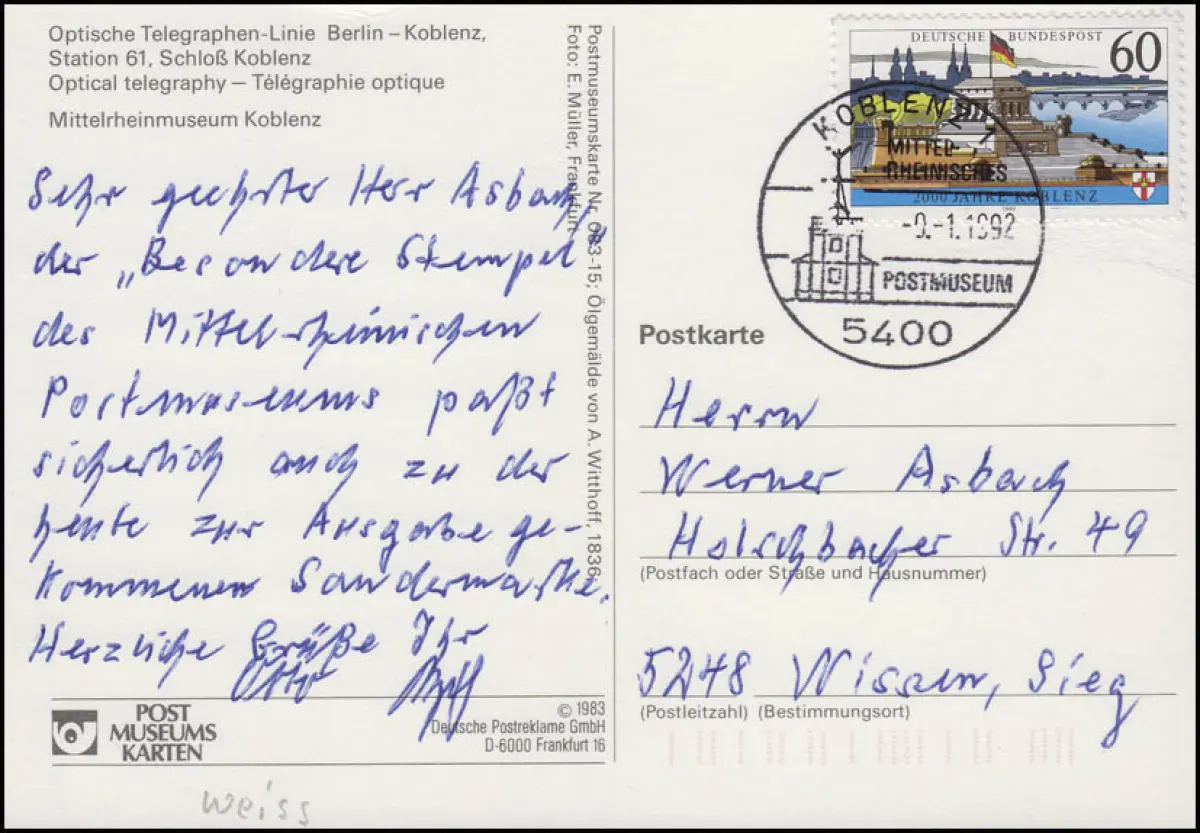 Optische Telegraphen-Linie Berlin – Koblenz,
Station 61, Schloß Koblenz
Optical telegraphy – Télégraphie optique
Mittelrheinmuseum Koblenz
Sehr geehrter Herr Asbach,
der „Besondere Stempel
des Mittelrheinischen
Postmuseums paßt
sicherlich auch zu der
heute zur Ausgabe ge-
kommenen Sondermarke.
Herzliche Grüße Ihr
Otto
POST
MUSEUMS
KARTEN
© 1983
Deutsche Postreklame GmbH
D-6000 Frankfurt 16
weiss
Postmuseumskarte Nr. 083-15; Ölgemälde von A. Witthoff, 1836;
Foto: E. Müller, Frankfurt
DEUTSCHE BUNDESPOST 60
2000 JAHRE KOBLENZ
1992
KOBLENZ 1
MITTEL-
RHEINISCHES
-9.-1.1992
POSTMUSEUM
5400
Postkarte
Herrn
Werner Asbach
Holschbacher Str. 49
(Postfach oder Straße und Hausnummer)
5248 Wissen, Sieg
(Postleitzahl) (Bestimmungsort)